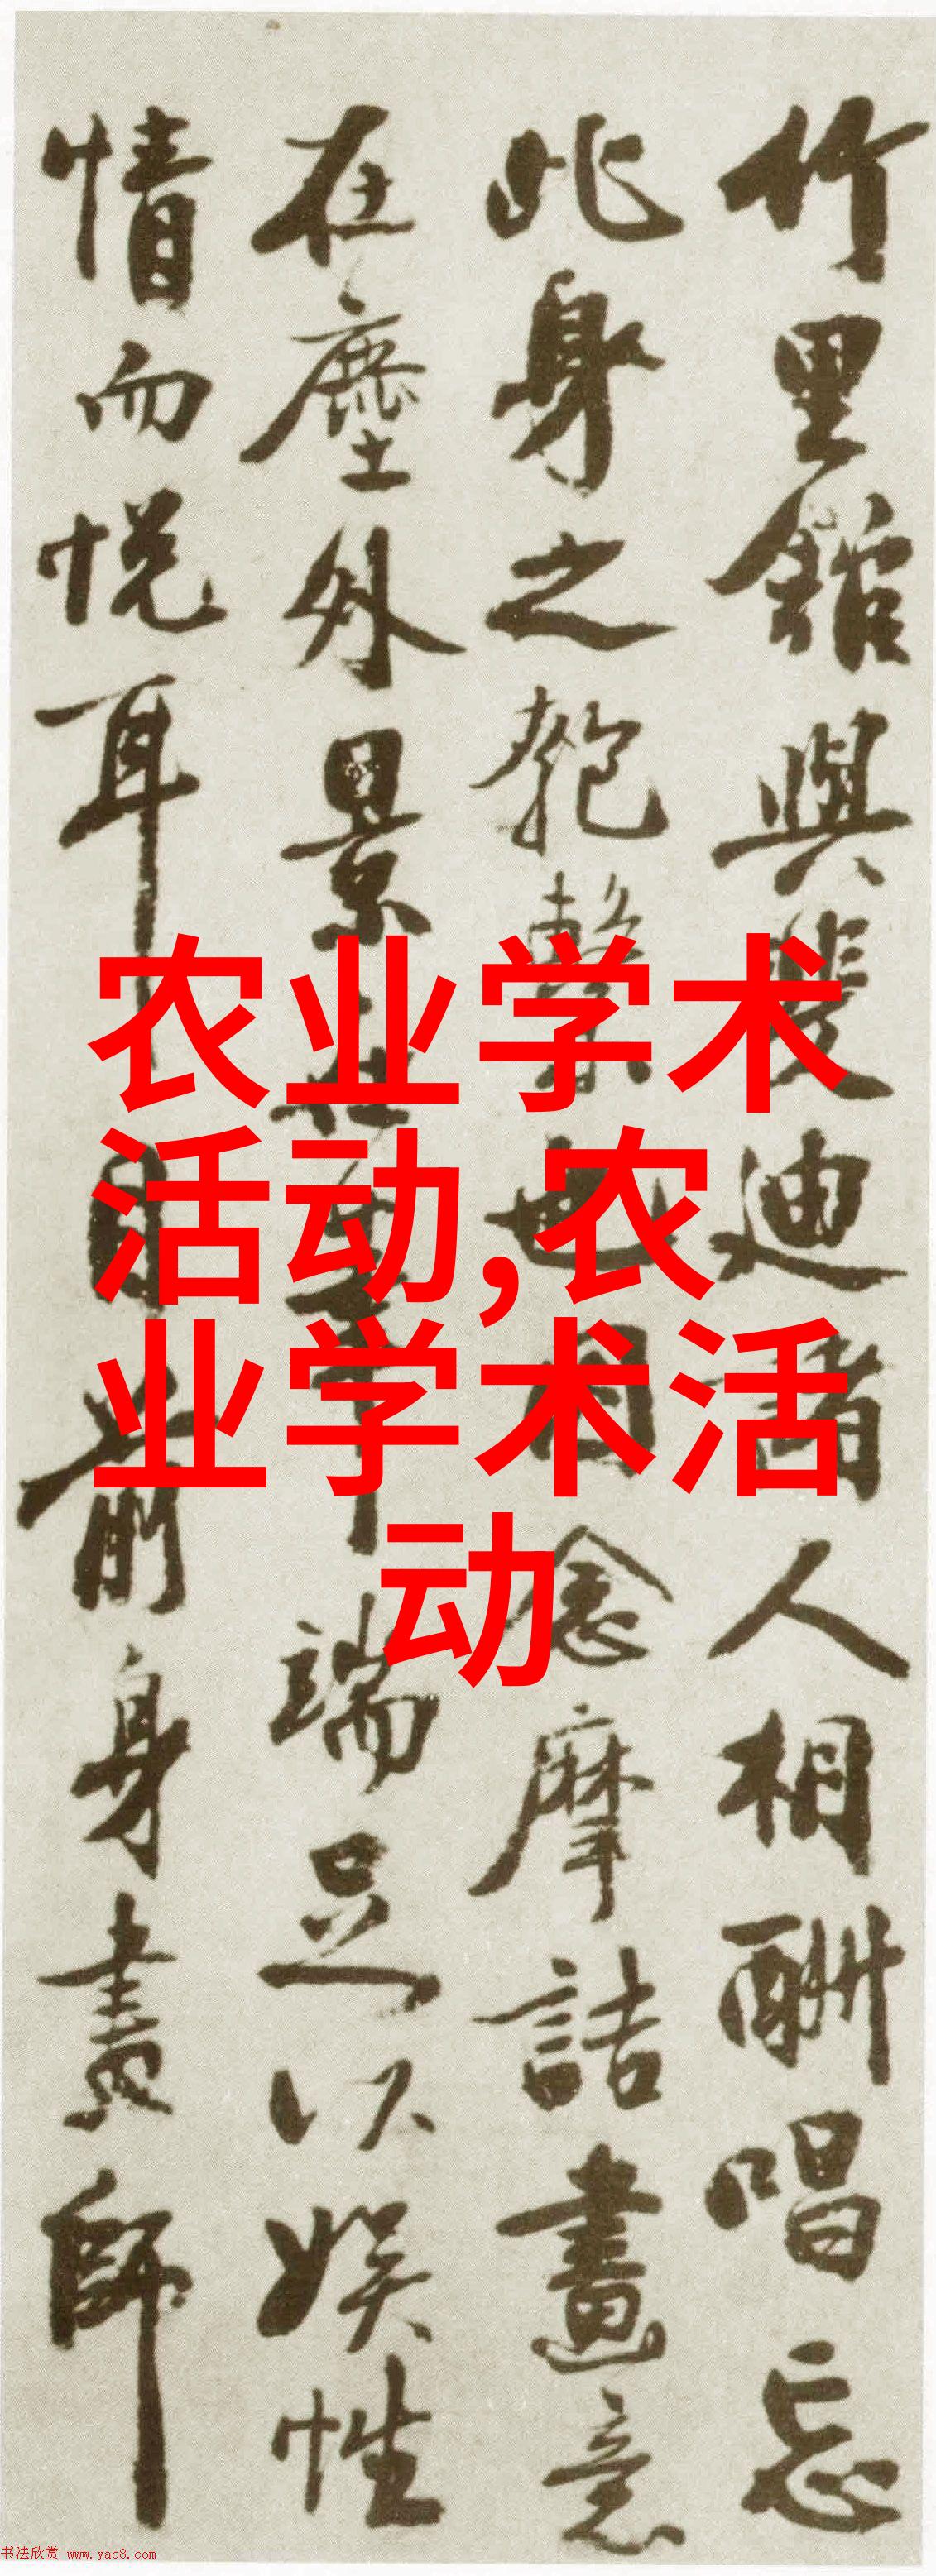 竹里館與斐迪諸人相酬唱忘
此身之匏繫也因念摩詰畫意
在塵外景在筆端足以娛性
情而悦耳目前身畫師
农业学术
活动,农
业学术活
动
书法欣赏 www.yac8.com